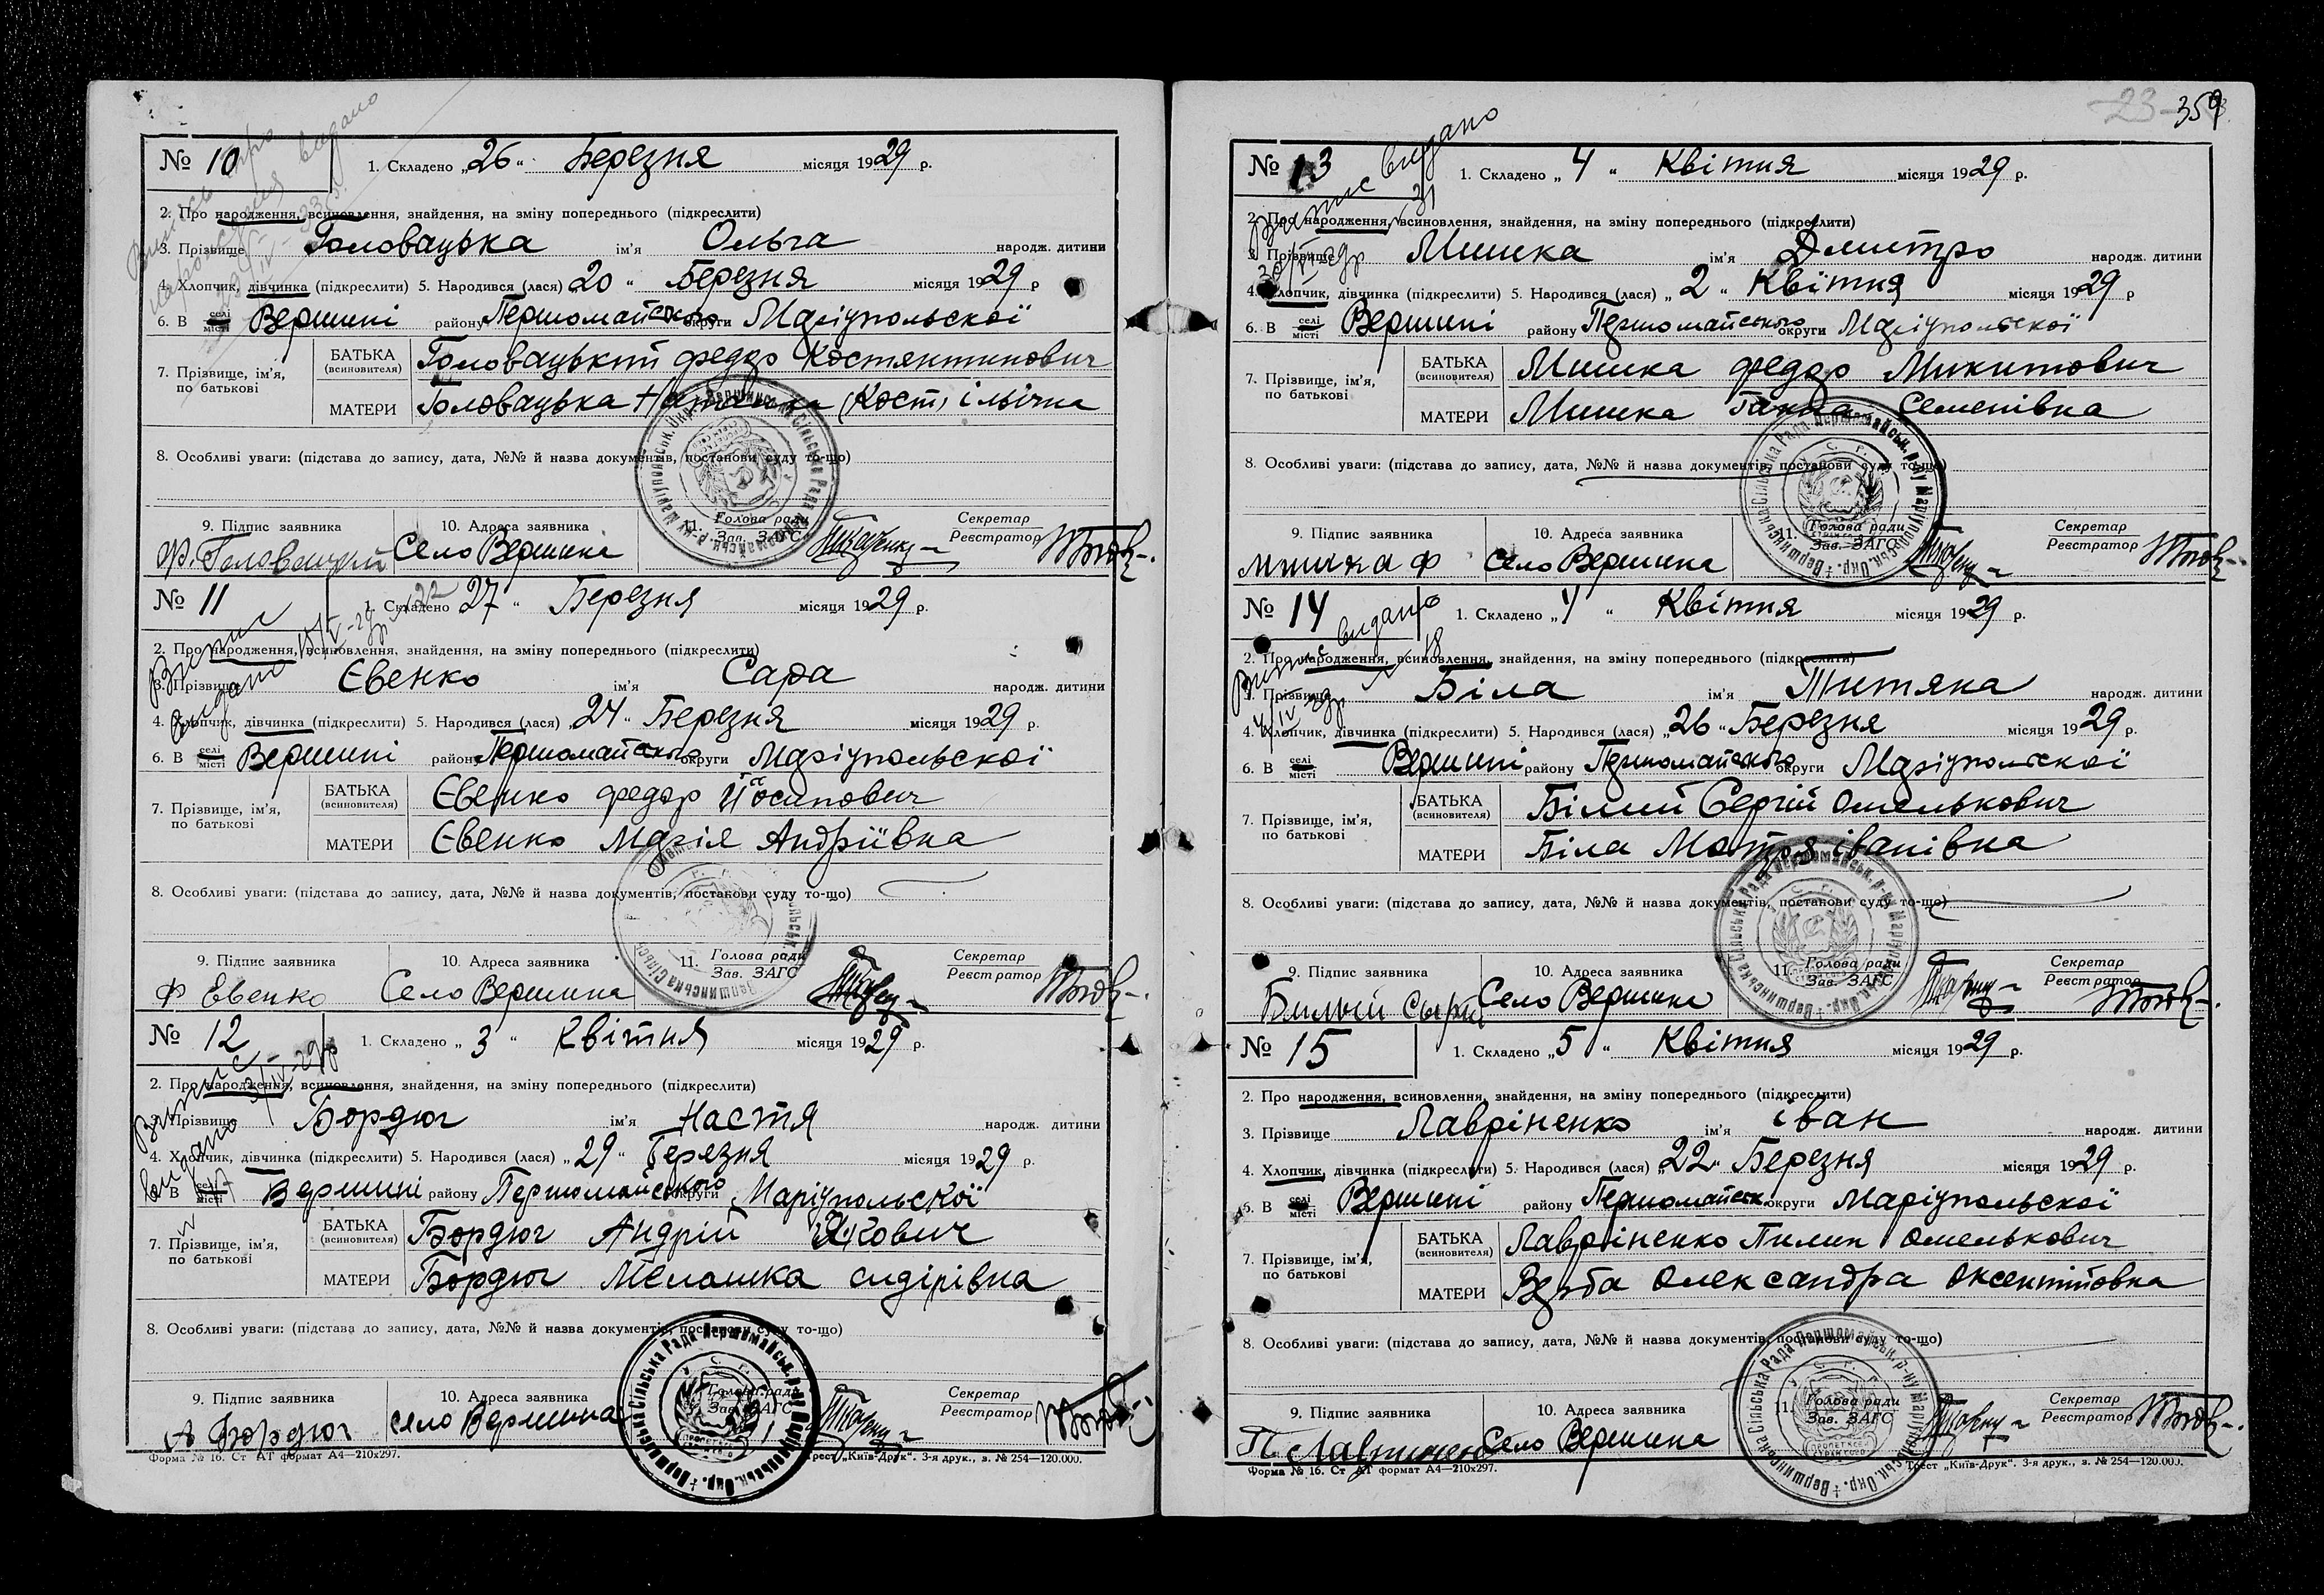 № 10 1. Складено „26“ Березня місяця 1929 р.
2. Про народження, всиновлення, знайдення, на зміну попереднього (підкреслити)
3. Прізвище Головацька ім'я Ольга народж. дитини
4. Хлопчик, дівчинка (підкреслити) 5. Народився (лася) „20“ Березня місяця 1929 р
6. В селі місті Вершині району Першомайського округи Маріупольскої
7. Прізвище, ім'я, по батькові
БАТЬКА (всиновителя) Головацький Федор Костянтинович
МАТЕРИ Головацька Наталка (Кост) ільїчна
8. Особливі уваги: (підстава до запису, дата, №№ й назва документів, постанови суду то-що)
9. Підпис заявника 10. Адреса заявника 11. Голова ради Зав. ЗАГС Секретар Реєстратор
Ф. Головацкий Село Вершина
№ 11 1. Складено 27“ Березня місяця 1929 р.
2. Про народження, всиновлення, знайдення, на зміну попереднього (підкреслити)
3. Прізвище Євенко ім'я Сара народж. дитини
4. Хлопчик, дівчинка (підкреслити) 5. Народився (лася) „24“ Березня місяця 1929 р.
6. В селі місті Вершині району Першомайського округи Маріупольскої
7. Прізвище, ім'я, по батькові
БАТЬКА (всиновителя) Євенко Федор Йосипович
МАТЕРИ Євенко Марія Андріївна
8. Особливі уваги: (підстава до запису, дата, №№ й назва документів, постанови суду то-що)
9. Підпис заявника 10. Адреса заявника 11. Голова ради Зав. ЗАГС Секретар Реєстратор
Ф Евенко Село Вершина
№ 12 1. Складено „3“ Квітня місяця 1929 р.
2. Про народження, всиновлення, знайдення, на зміну попереднього (підкреслити)
3. Прізвище Бордюг ім'я Настя народж. дитини
4. Хлопчик, дівчинка (підкреслити) 5. Народився (лася) „29“ Березня місяця 1929 р.
6. В селі місті Вершині району Першомайського округи Маріупольської
7. Прізвище, ім'я, по батькові
БАТЬКА (всиновителя) Бордюг Андрій Якович
МАТЕРИ Бордюг Мелашка сидірівна
8. Особливі уваги: (підстава до запису, дата, №№ й назва документів, постанови суду то-що)
9. Підпис заявника 10. Адреса заявника 11. Голова ради Зав. ЗАГС Секретар Реєстратор
А Бордюг село Вершина
Форма № 16. Ст АТ формат А4—210х297. Трест „Київ-Друк“. 3-я друк., з. № 254—120.000.
359
23
№ 13 1. Складено „4“ Квітня місяця 1929 р.
2. Про народження, всиновлення, знайдення, на зміну попереднього (підкреслити)
3. Прізвище Мишка ім'я Дмитро народж. дитини
4. Хлопчик, дівчинка (підкреслити) 5. Народився (лася) „2“ Квітня місяця 1929 р
6. В селі місті Вершині району Першомайського округи Маріупольскої
7. Прізвище, ім'я, по батькові
БАТЬКА (всиновителя) Мишка Федор Микитович
МАТЕРИ Мишка Ганна Семенівна
8. Особливі уваги: (підстава до запису, дата, №№ й назва документів, постанови суду то-що)
9. Підпис заявника 10. Адреса заявника 11. Голова ради Зав. ЗАГС Секретар Реєстратор
мишка ф Село Вершина
№ 14 1. Складено „4“ Квітня місяця 1929 р.
2. Про народження, всиновлення, знайдення, на зміну попереднього (підкреслити)
3. Прізвище Біла ім'я Титяна народж. дитини
4. Хлопчик, дівчинка (підкреслити) 5. Народився (лася) „26“ Березня місяця 1929 р.
6. В селі місті Вершині району Першомайського округи Маріупольскої
7. Прізвище, ім'я, по батькові
БАТЬКА (всиновителя) Білий Сергій Омелькович
МАТЕРИ Біла Мотря іванівна
8. Особливі уваги: (підстава до запису, дата, №№ й назва документів, постанови суду то-що)
9. Підпис заявника 10. Адреса заявника 11. Голова ради Зав. ЗАГС Секретар Реєстратор
Билый Село Вершина
№ 15 1. Складено „5“ Квітня місяця 1929 р.
2. Про народження, всиновлення, знайдення, на зміну попереднього (підкреслити)
3. Прізвище Лавріненко ім'я іван народж. дитини
4. Хлопчик, дівчинка (підкреслити) 5. Народився (лася) „22“ Березня місяця 1929 р.
6. В селі місті Вершині району Першомайськ. округи Маріупольскої
7. Прізвище, ім'я, по батькові
БАТЬКА (всиновителя) Лавріненко Пилип Омелькович
МАТЕРИ Верба Олександра Оксентіївна
8. Особливі уваги: (підстава до запису, дата, №№ й назва документів, постанови суду то-що)
9. Підпис заявника 10. Адреса заявника 11. Голова ради Зав. ЗАГС Секретар Реєстратор
П. Лавриненко Село Вершина
Форма № 16. Ст АТ формат А4—210х297. Трест „Київ-Друк“. 3-я друк., з. № 254—120.000.